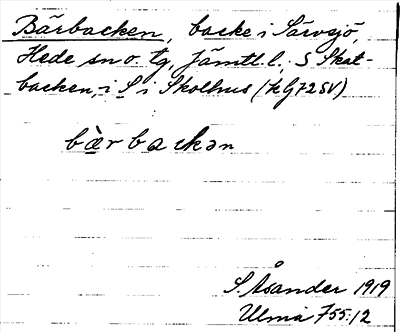 Bärbacken, backe i Särvsjö,
Hede sn o. tg, Jämtl. l. S Skat-
backen, i S i Skolhus (kG72SV)
bæ̀rbackən
S. Åsander 1919
Ulma 755:12